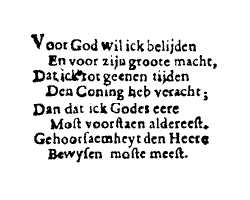 Voor God wil ick belijden
En voor zijn groote macht,
Dat ick tot geenen tijden
Den Coning heb veracht;
Dan dat ick Godes eere
Most voorstaen aldereest.
Gehoorsaemheyt den Heere
Bewysen moste meest.